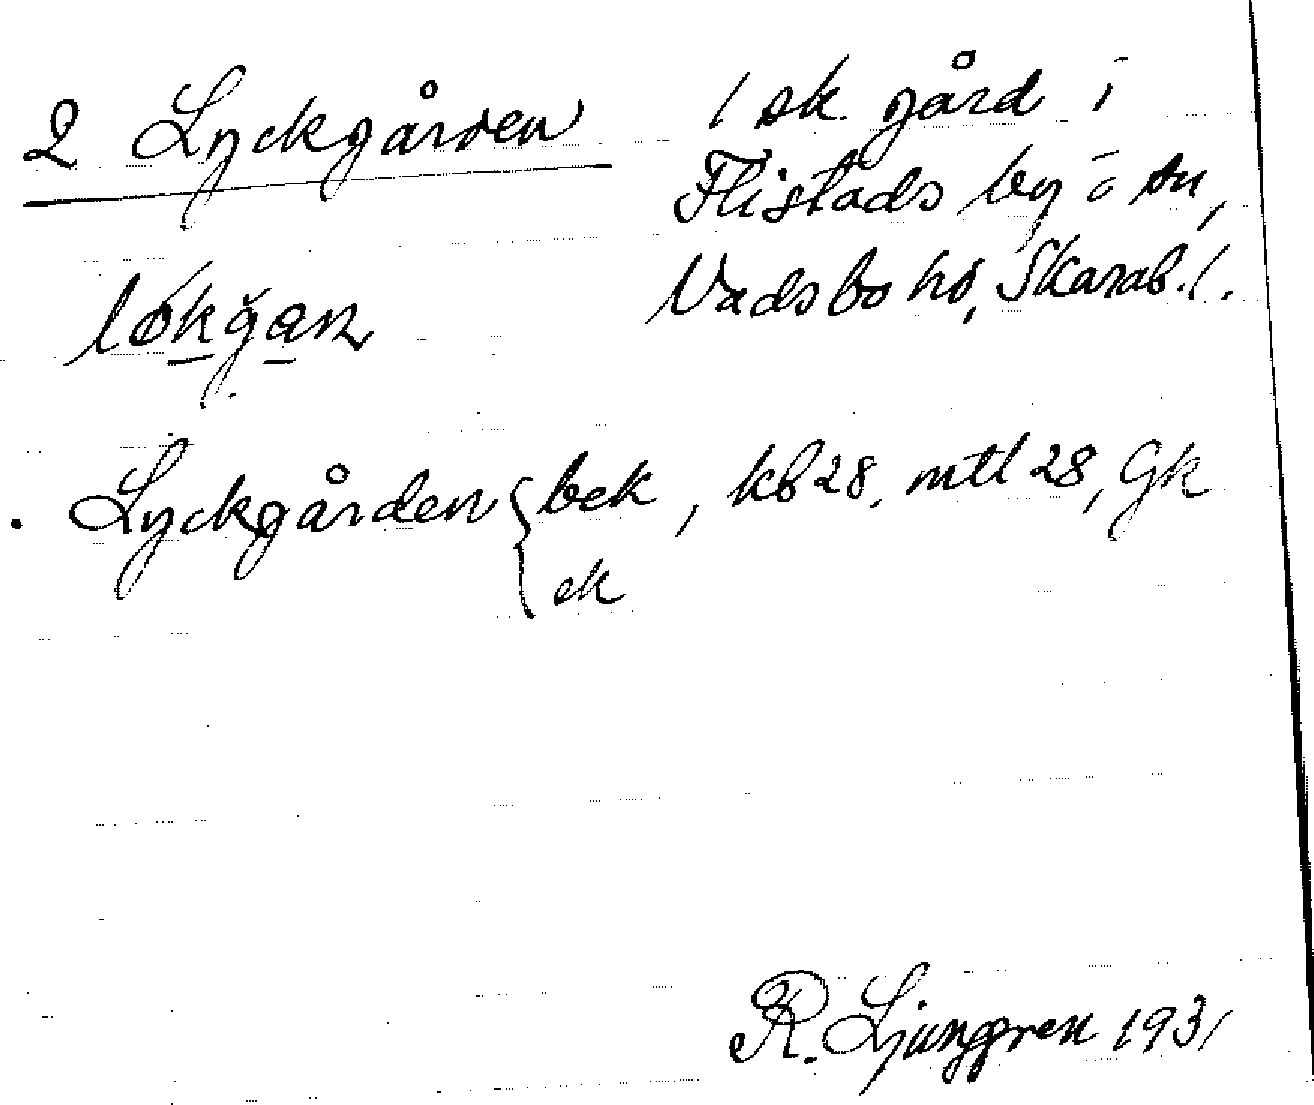 2 Lyckgården
1 sk. gård i
Flistads by o sn,
Vadsbo hd, Skarab. l.
Lyckgården { bek, kb 28, mtl 28, Gk
ek
R. Ljunggren 1931